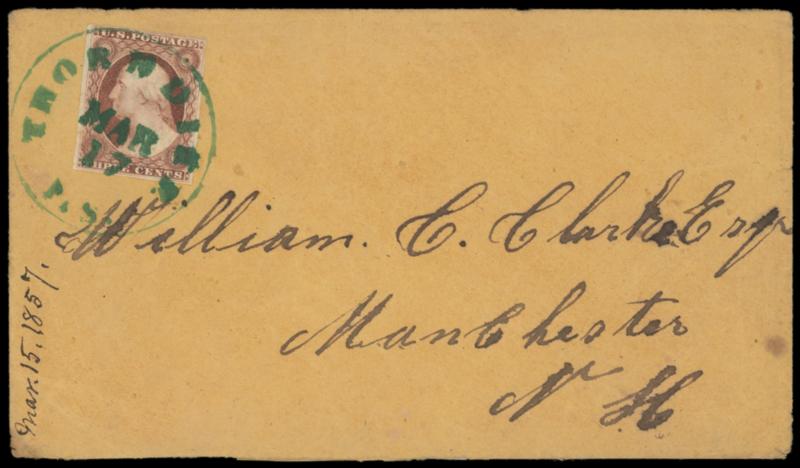 U.S. POSTAGE
THREE CENTS
THORNDIKE
MAR
17
William. C. Clarke Esqr
Manchester
N H
Mar. 15, 1857.